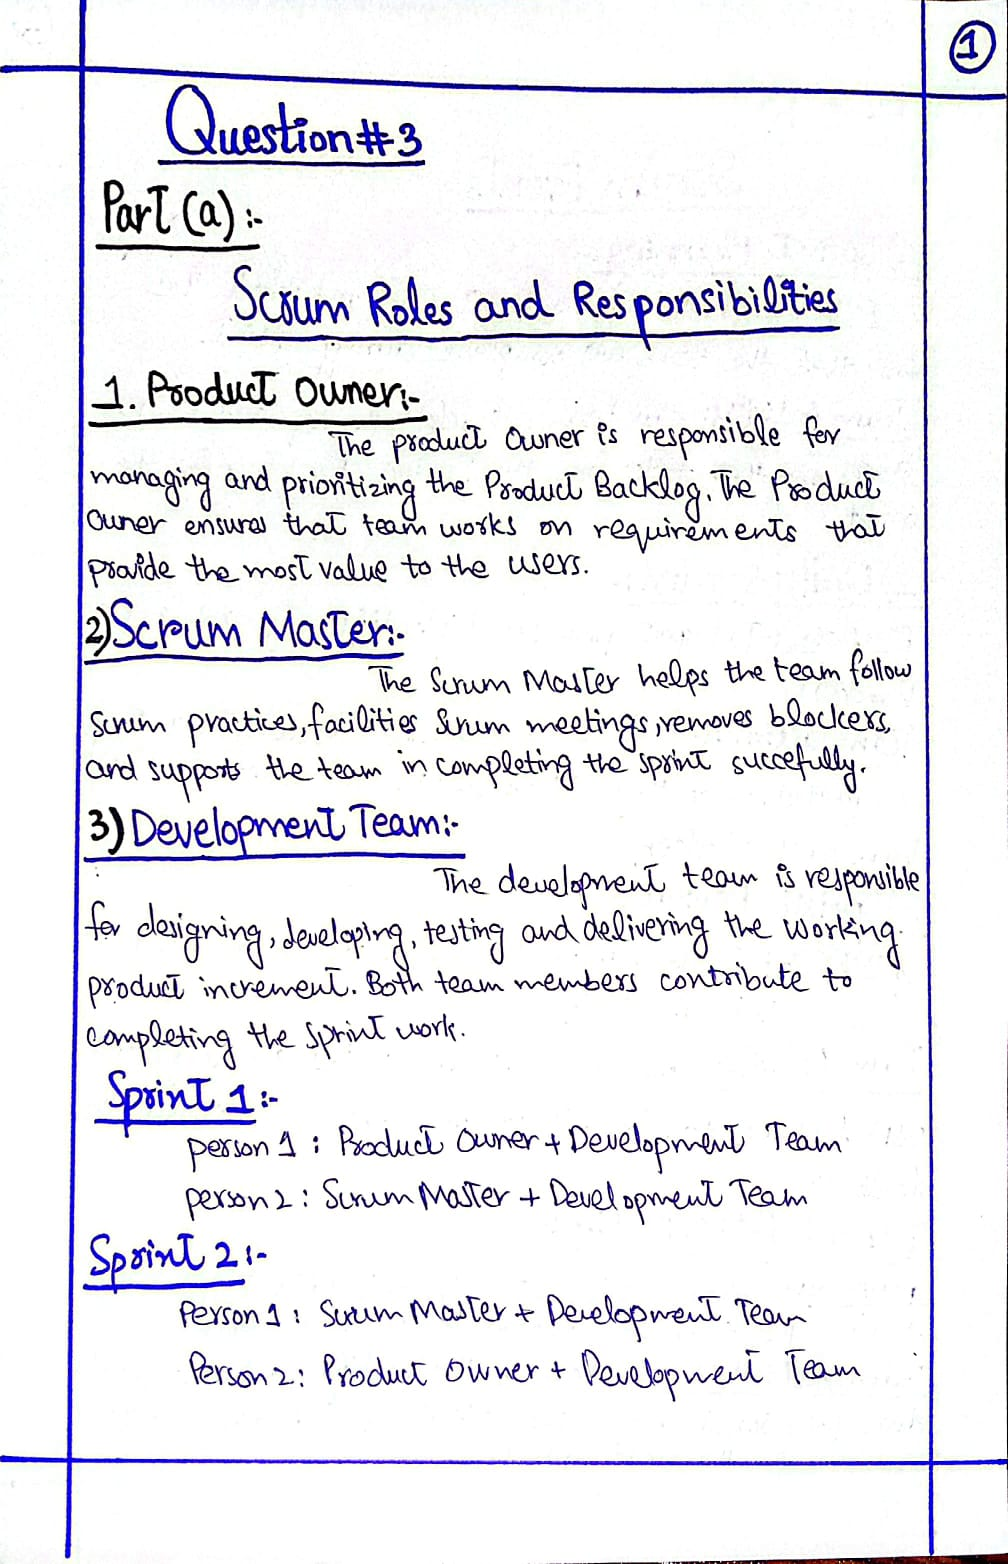 1
Question#3
Part (a) :-
Scrum Roles and Responsibilities
1. Product Owner:-
The product Owner is responsible for
managing and prioritizing the Product Backlog. The Product
Owner ensures that team works on requirements that
provide the most value to the users.
2) Scrum Master:-
The Scrum Master helps the team follow
Scrum practices, facilities Scrum meetings, removes blockers,
and supports the team in completing the sprint succefully.
3) Development Team:-
The development team is responsible
for designing, developing, testing and delivering the working
product increment. Both team members contribute to
completing the Sprint work.
Sprint 1 :-
person 1 : Product Owner + Development Team
person 2 : Scrum Master + Development Team
Sprint 2 :-
Person 1 : Scrum Master + Development Team
Person 2 : Product Owner + Development Team